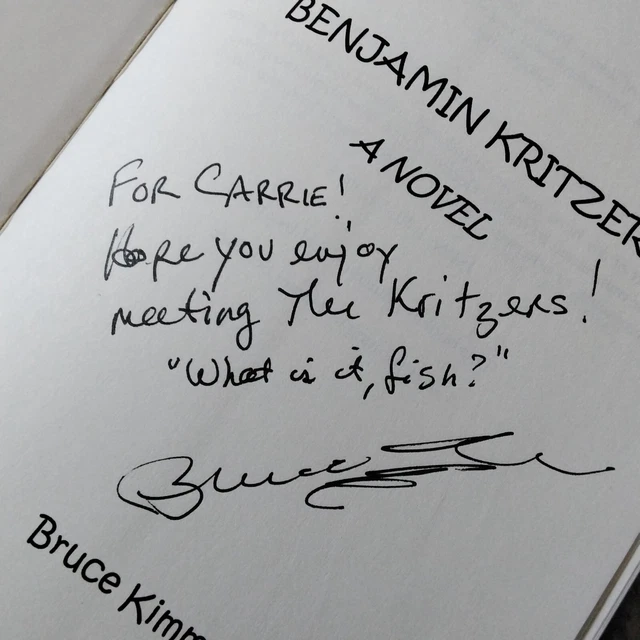 BENJAMIN KRITZER
A NOVEL
FOR CARRIE!
Hope you enjoy
meeting The Kritzers!
"What is it, fish?"
Bruce
Bruce Kimm